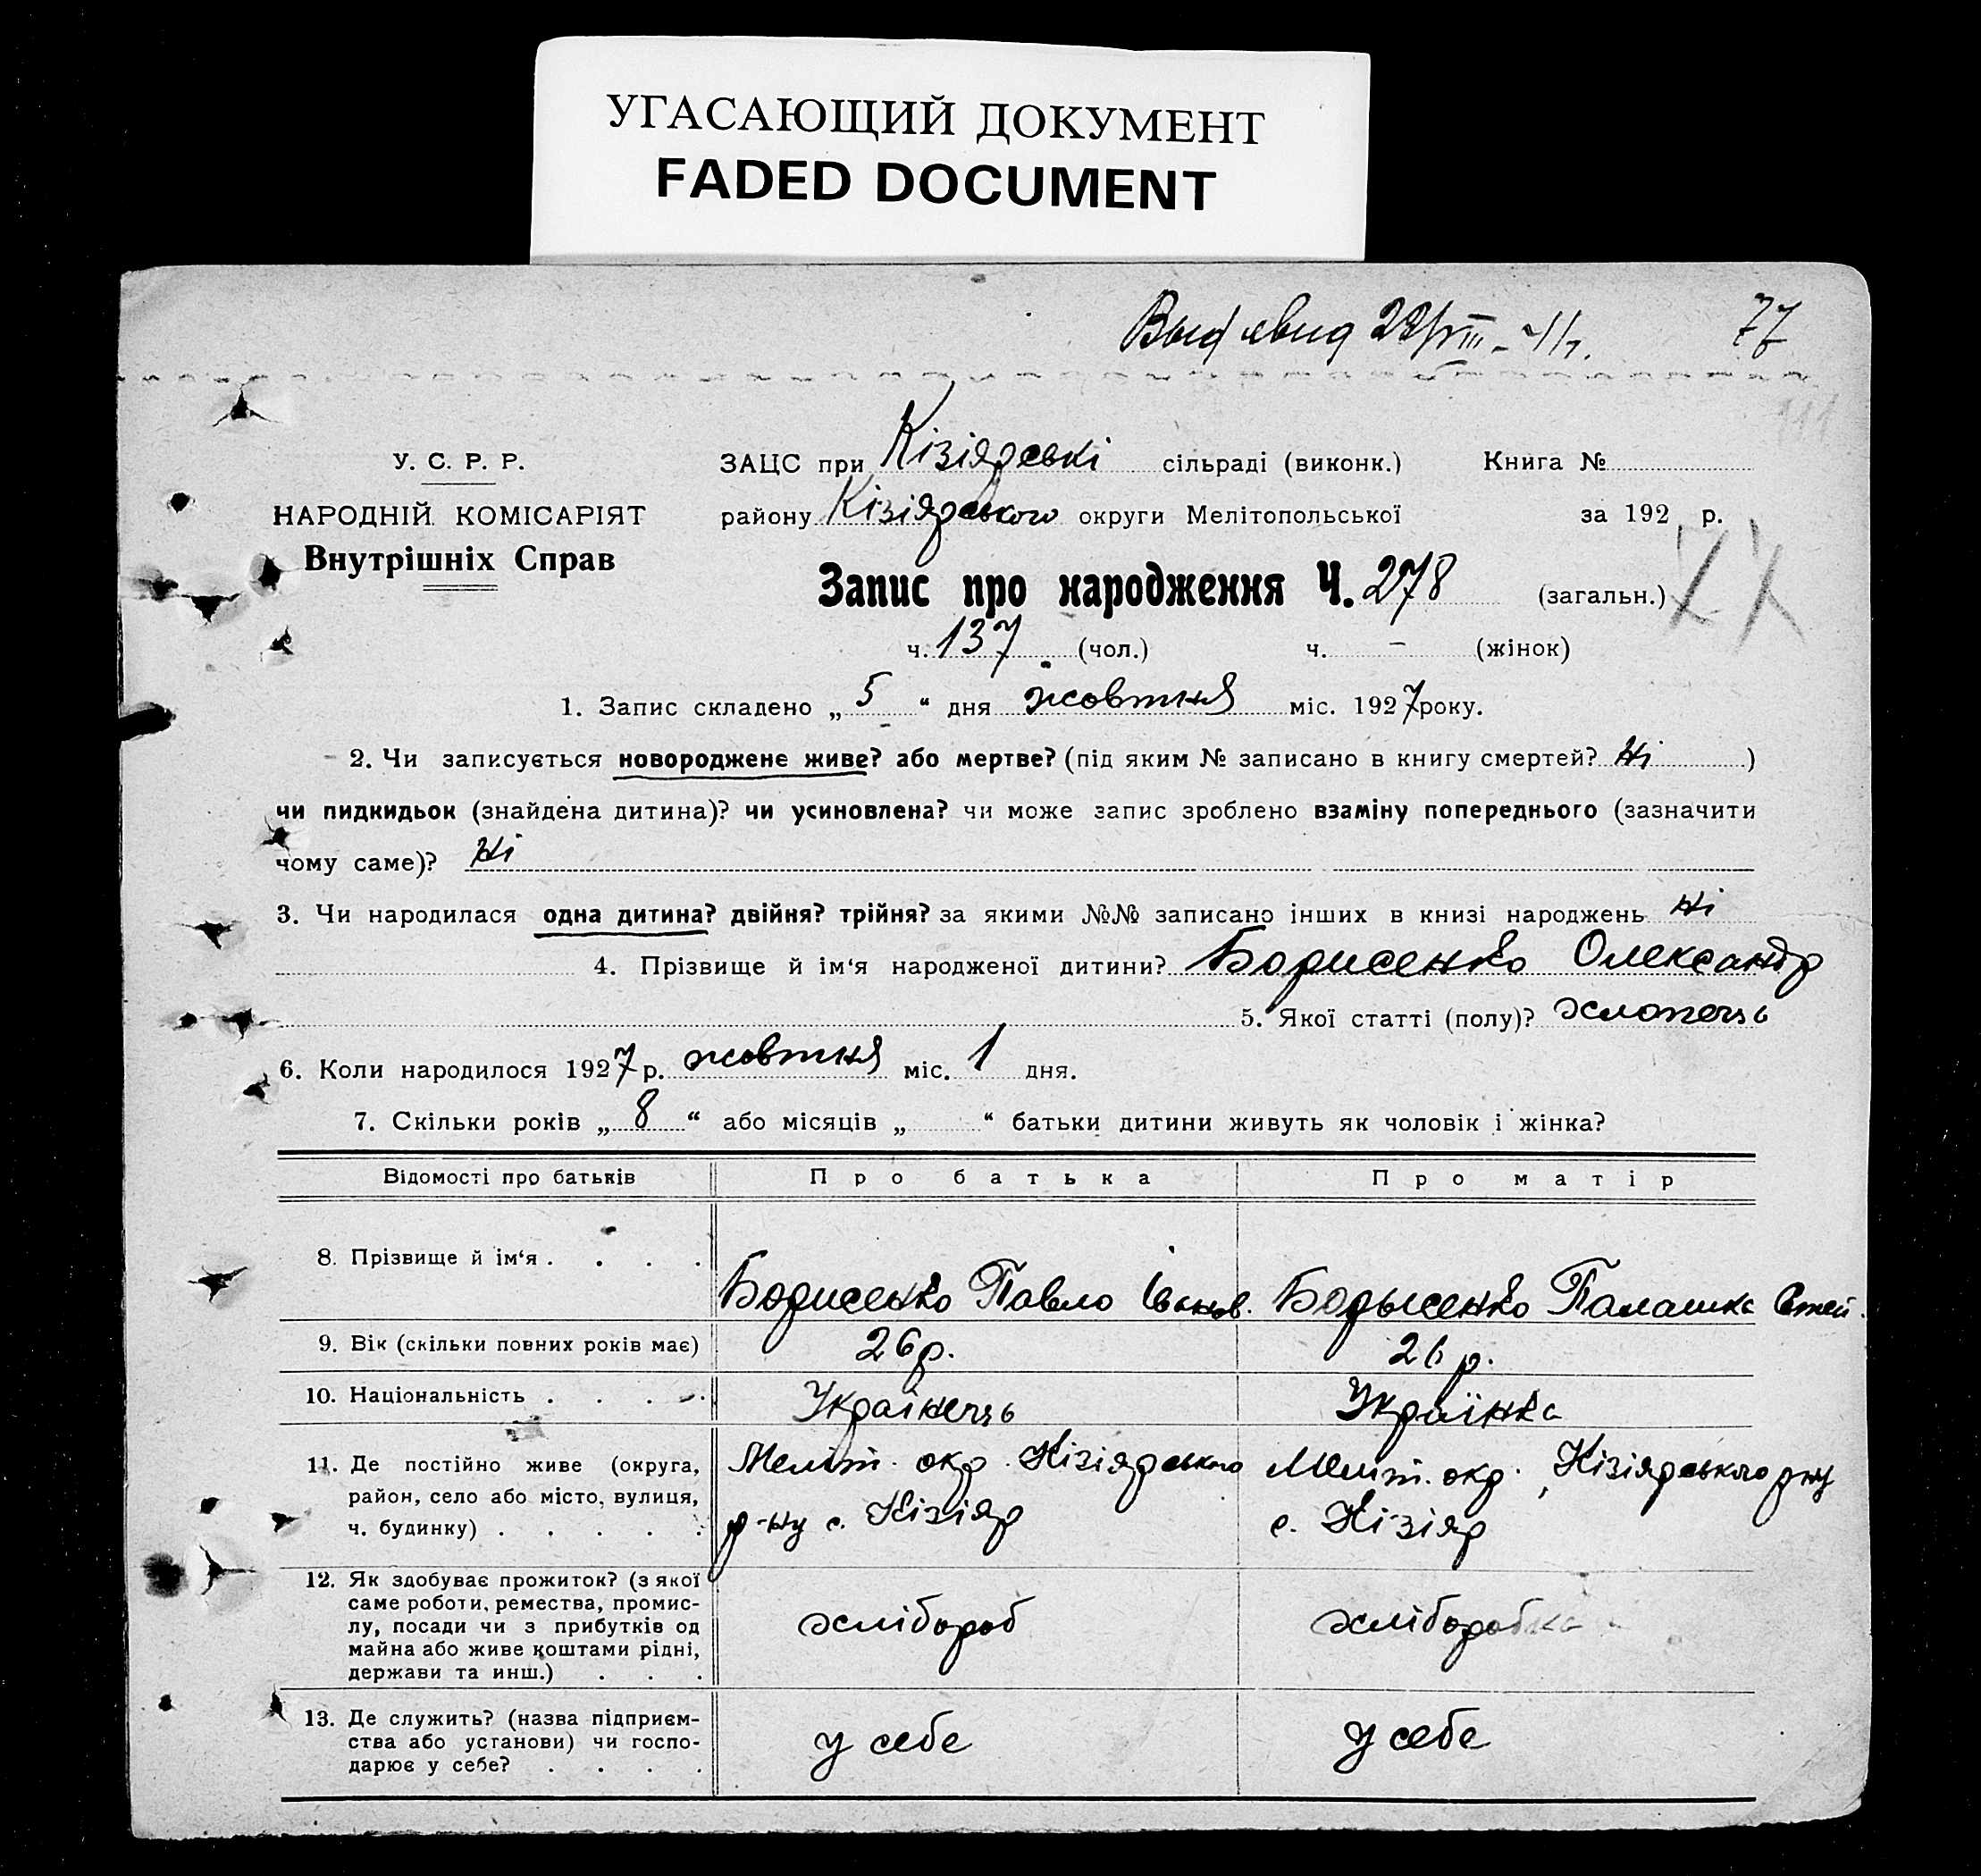 УГАСАЮЩИЙ ДОКУМЕНТ
FADED DOCUMENT
77
У. С. Р. Р.
НАРОДНІЙ КОМІСАРІЯТ
Внутрішніх Справ
ЗАЦС при Кізіярські сільраді (виконк.) Книга №
району Кізіярського округи Мелітопольської за 192 р.
Запис про народження Ч. 278 (загальн.)
ч. 137 (чол.) ч. – (жінок)
1. Запис складено „ 5 “ дня жовтня міс. 1927 року.
2. Чи записується новороджене живе? або мертве? (під яким № записано в книгу смертей? Ні )
чи пидкидьок (знайдена дитина)? чи усиновлена? чи може запис зроблено взаміну попереднього (зазначити
чому саме)? Ні
3. Чи народилася одна дитина? двійня? трійня? за якими №№ записано інших в книзі народжень Ні
4. Прізвище й ім‘я народженої дитини? Борисенко Олександр
5. Якої статті (полу)? хлопець
6. Коли народилося 1927 р. жовтня міс. 1 дня.
7. Скільки років „ 8 “ або місяців „ “ батьки дитини живуть як чоловік і жінка?
Відомості про батьків Про батька Про матір
8. Прізвище й ім‘я . . . . Борисенко Павло Іванов. Борысенко Палашка
9. Вік (скільки повних років має) 26 р. 26 р.
10. Національність . . . . Українець Українка
11. Де постійно живе (округа,
район, село або місто, вулиця,
ч. будинку) . . . . .
Меліт. окр. Кізіярського
р-ну с. Кізіяр
Меліт. окр. Кізіярського рну
с. Кізіяр
12. Як здобуває прожиток? (з якої
саме роботи, ремества, промис-
лу, посади чи з прибутків од
майна або живе коштами рідні,
держави та инш.) . . .
хлібороб
хліборобка
13. Де служить? (назва підприєм-
ства або установи) чи госпо-
дарює у себе? . . . .
у себе
у себе